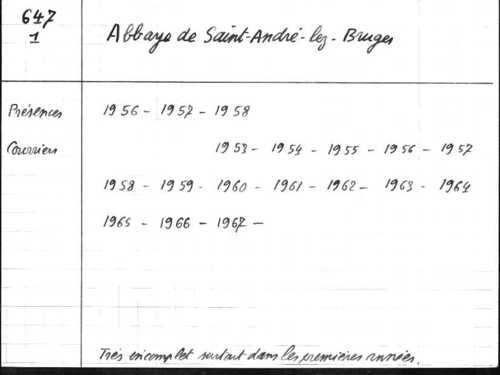 647
1
Abbaye de Saint-André-lez-Bruges
Présences 1956 - 1957 - 1958
Courriers 1953 - 1954 - 1955 - 1956 - 1957
1958 - 1959 - 1960 - 1961 - 1962 - 1963 - 1964
1965 - 1966 - 1967 -
Très incomplet surtout dans les premières années.